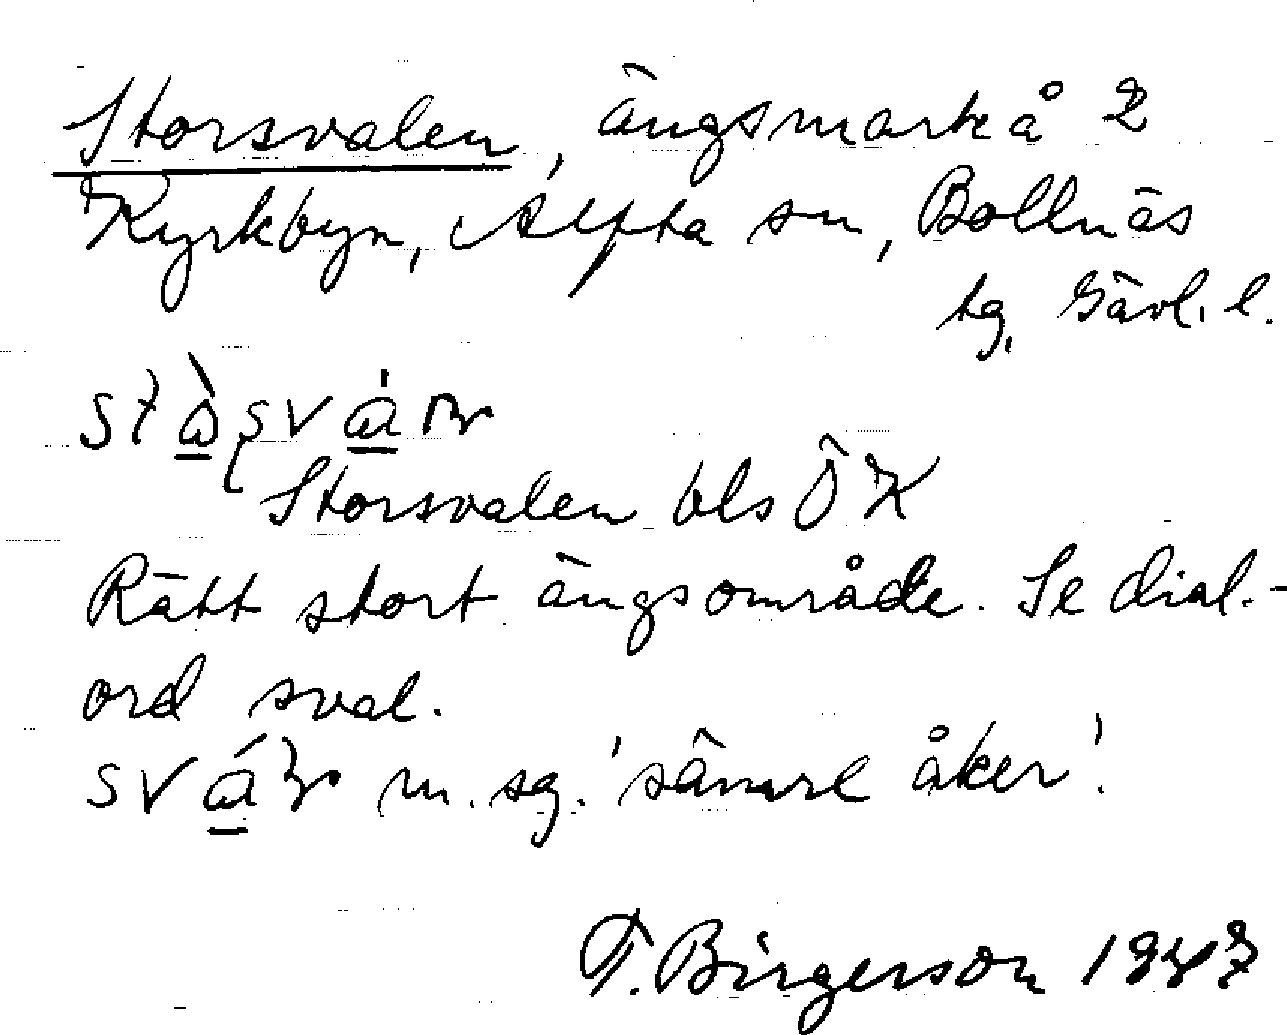 Storsvalen, ängsmark å 2
Kyrkbyn, Alfta sn, Bollnäs
tg, Gävl. l.
Storsvalen bls ÖK
Rätt stort ängsområde. Se dial.-
ord sval.
m. sg. 'sämre åker'.
T. Birgerson 1947